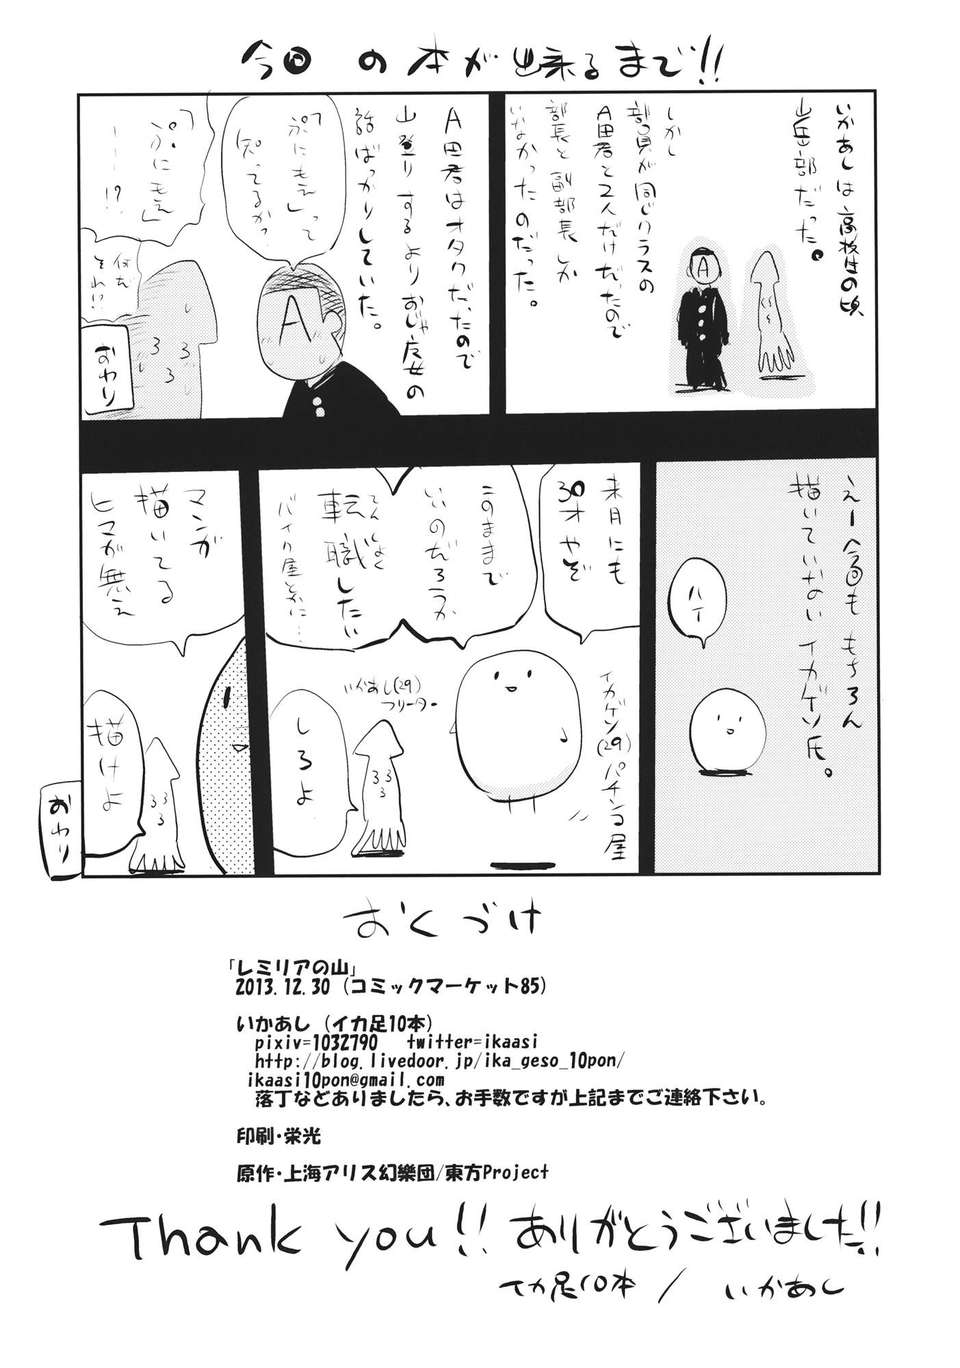 今回の本が出来るまで!!
いかあしは高校生の頃
山岳部だった。
A
しかし
部員が同じクラスの
A田君と2人だけだったので
部長と副部長しか
いなかったのだった。
A田君はオタクだったので
山登りするよりおじゃ魔女の
話ばっかりしていた。
「ぷにもえ」って
知ってるか?
A
「ぷにもえ」
…!?
何なの
それ!?
おわり
えー今回ももちろん
描いていないイカゲソ氏。
ハイ
来月にも
30才やぞ
このままで
いいのだろうか
てんしょく
転職したい
バイク屋とかに…
イカゲソ(29)パチンコ屋
いかあし(29)
フリーター
しろよ
マンガ
描いてる
ヒマが無え
描けよ
おわり
おくづけ
「レミリアの山」
2013.12.30 (コミックマーケット85)
いかあし (イカ足10本)
pixiv=1032790 twitter=ikaasi
http://blog.livedoor.jp/ika_geso_10pon/
ikaasi10pon@gmail.com
落丁などありましたら、お手数ですが上記までご連絡下さい。
印刷・栄光
原作・上海アリス幻樂団/東方Project
Thank you!! ありがとうございました!!
イカ足10本 / いかあし